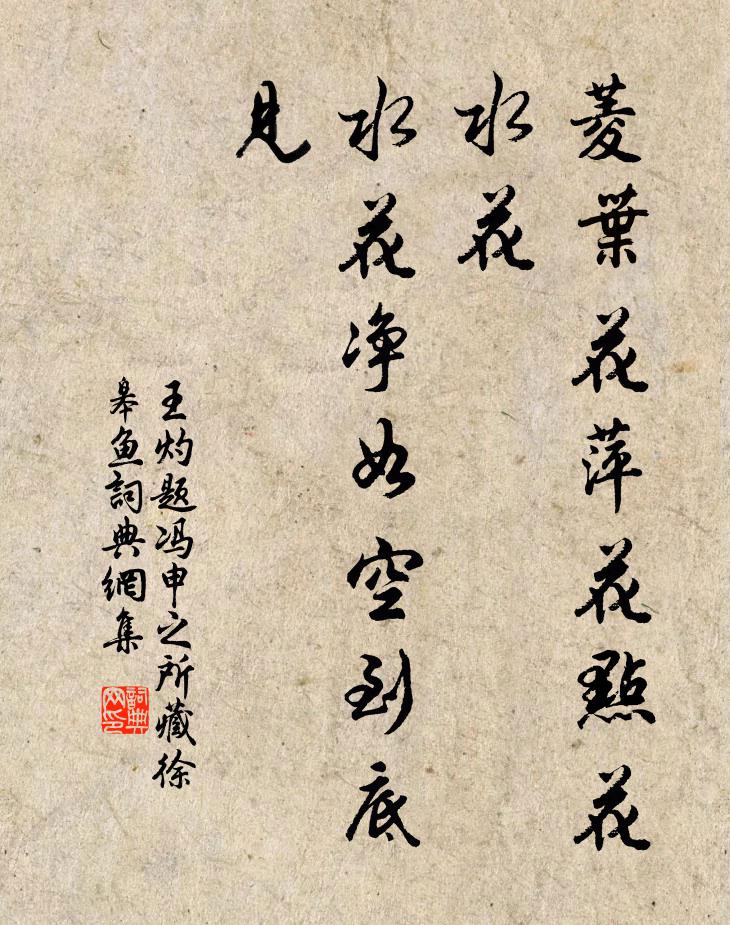 菱葉花萍花點花
水花
水花净如空到底
見
王灼題冯申之所藏徐
皋魚詞典網集
詞典
网印